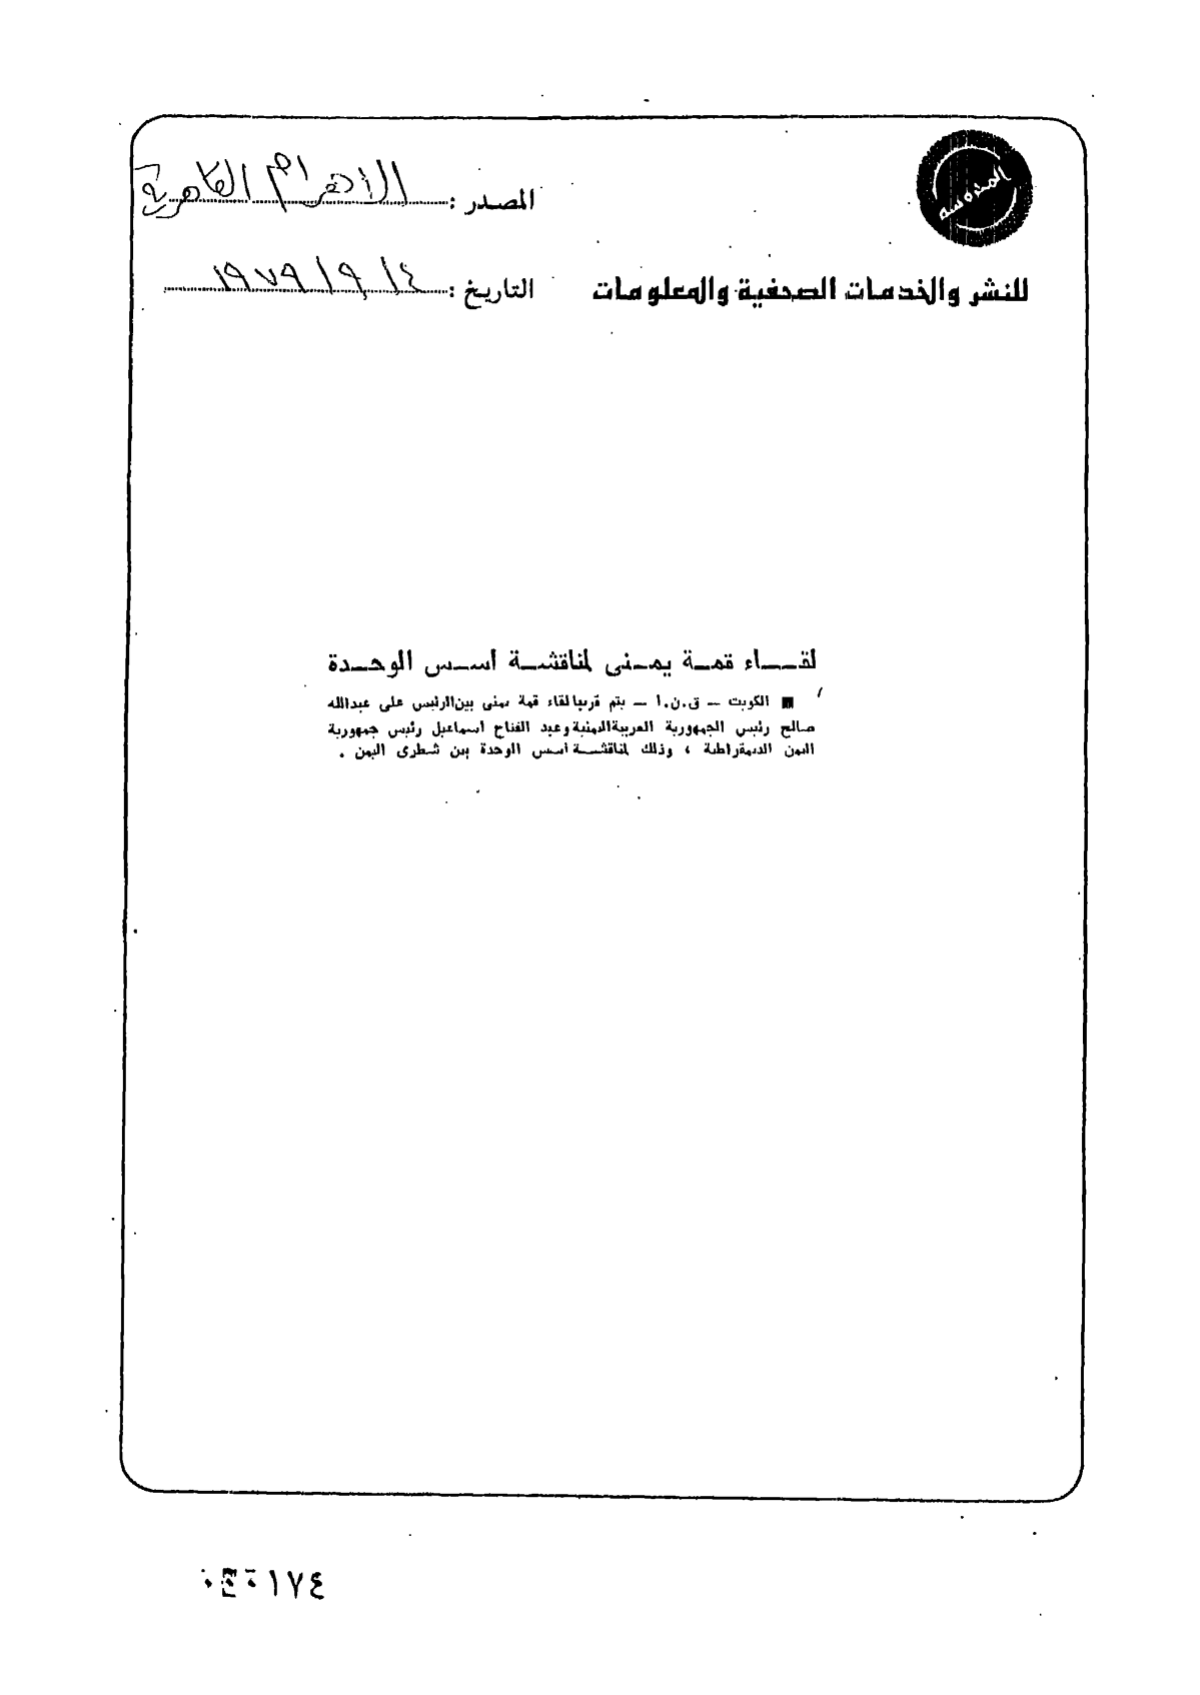 المحروسة
المصدر : الأهرام القاهرية
للنشر والخدمات الصحفية والمعلومات
التاريخ : ٤ / ٩ / ١٩٧٩
لقـــاء قمـة يمـنى لمناقشـة اسـس الوحـدة
■ الكويت – ق.ن.ا – يتم قريبا لقاء قمة يمنى بين الرئيس على عبدالله
صالح رئيس الجمهورية العربية اليمنية وعبد الفتاح اسماعيل رئيس جمهورية
اليمن الديمقراطية ، وذلك لمناقشـة اسس الوحدة بين شطرى اليمن .
١٧٤